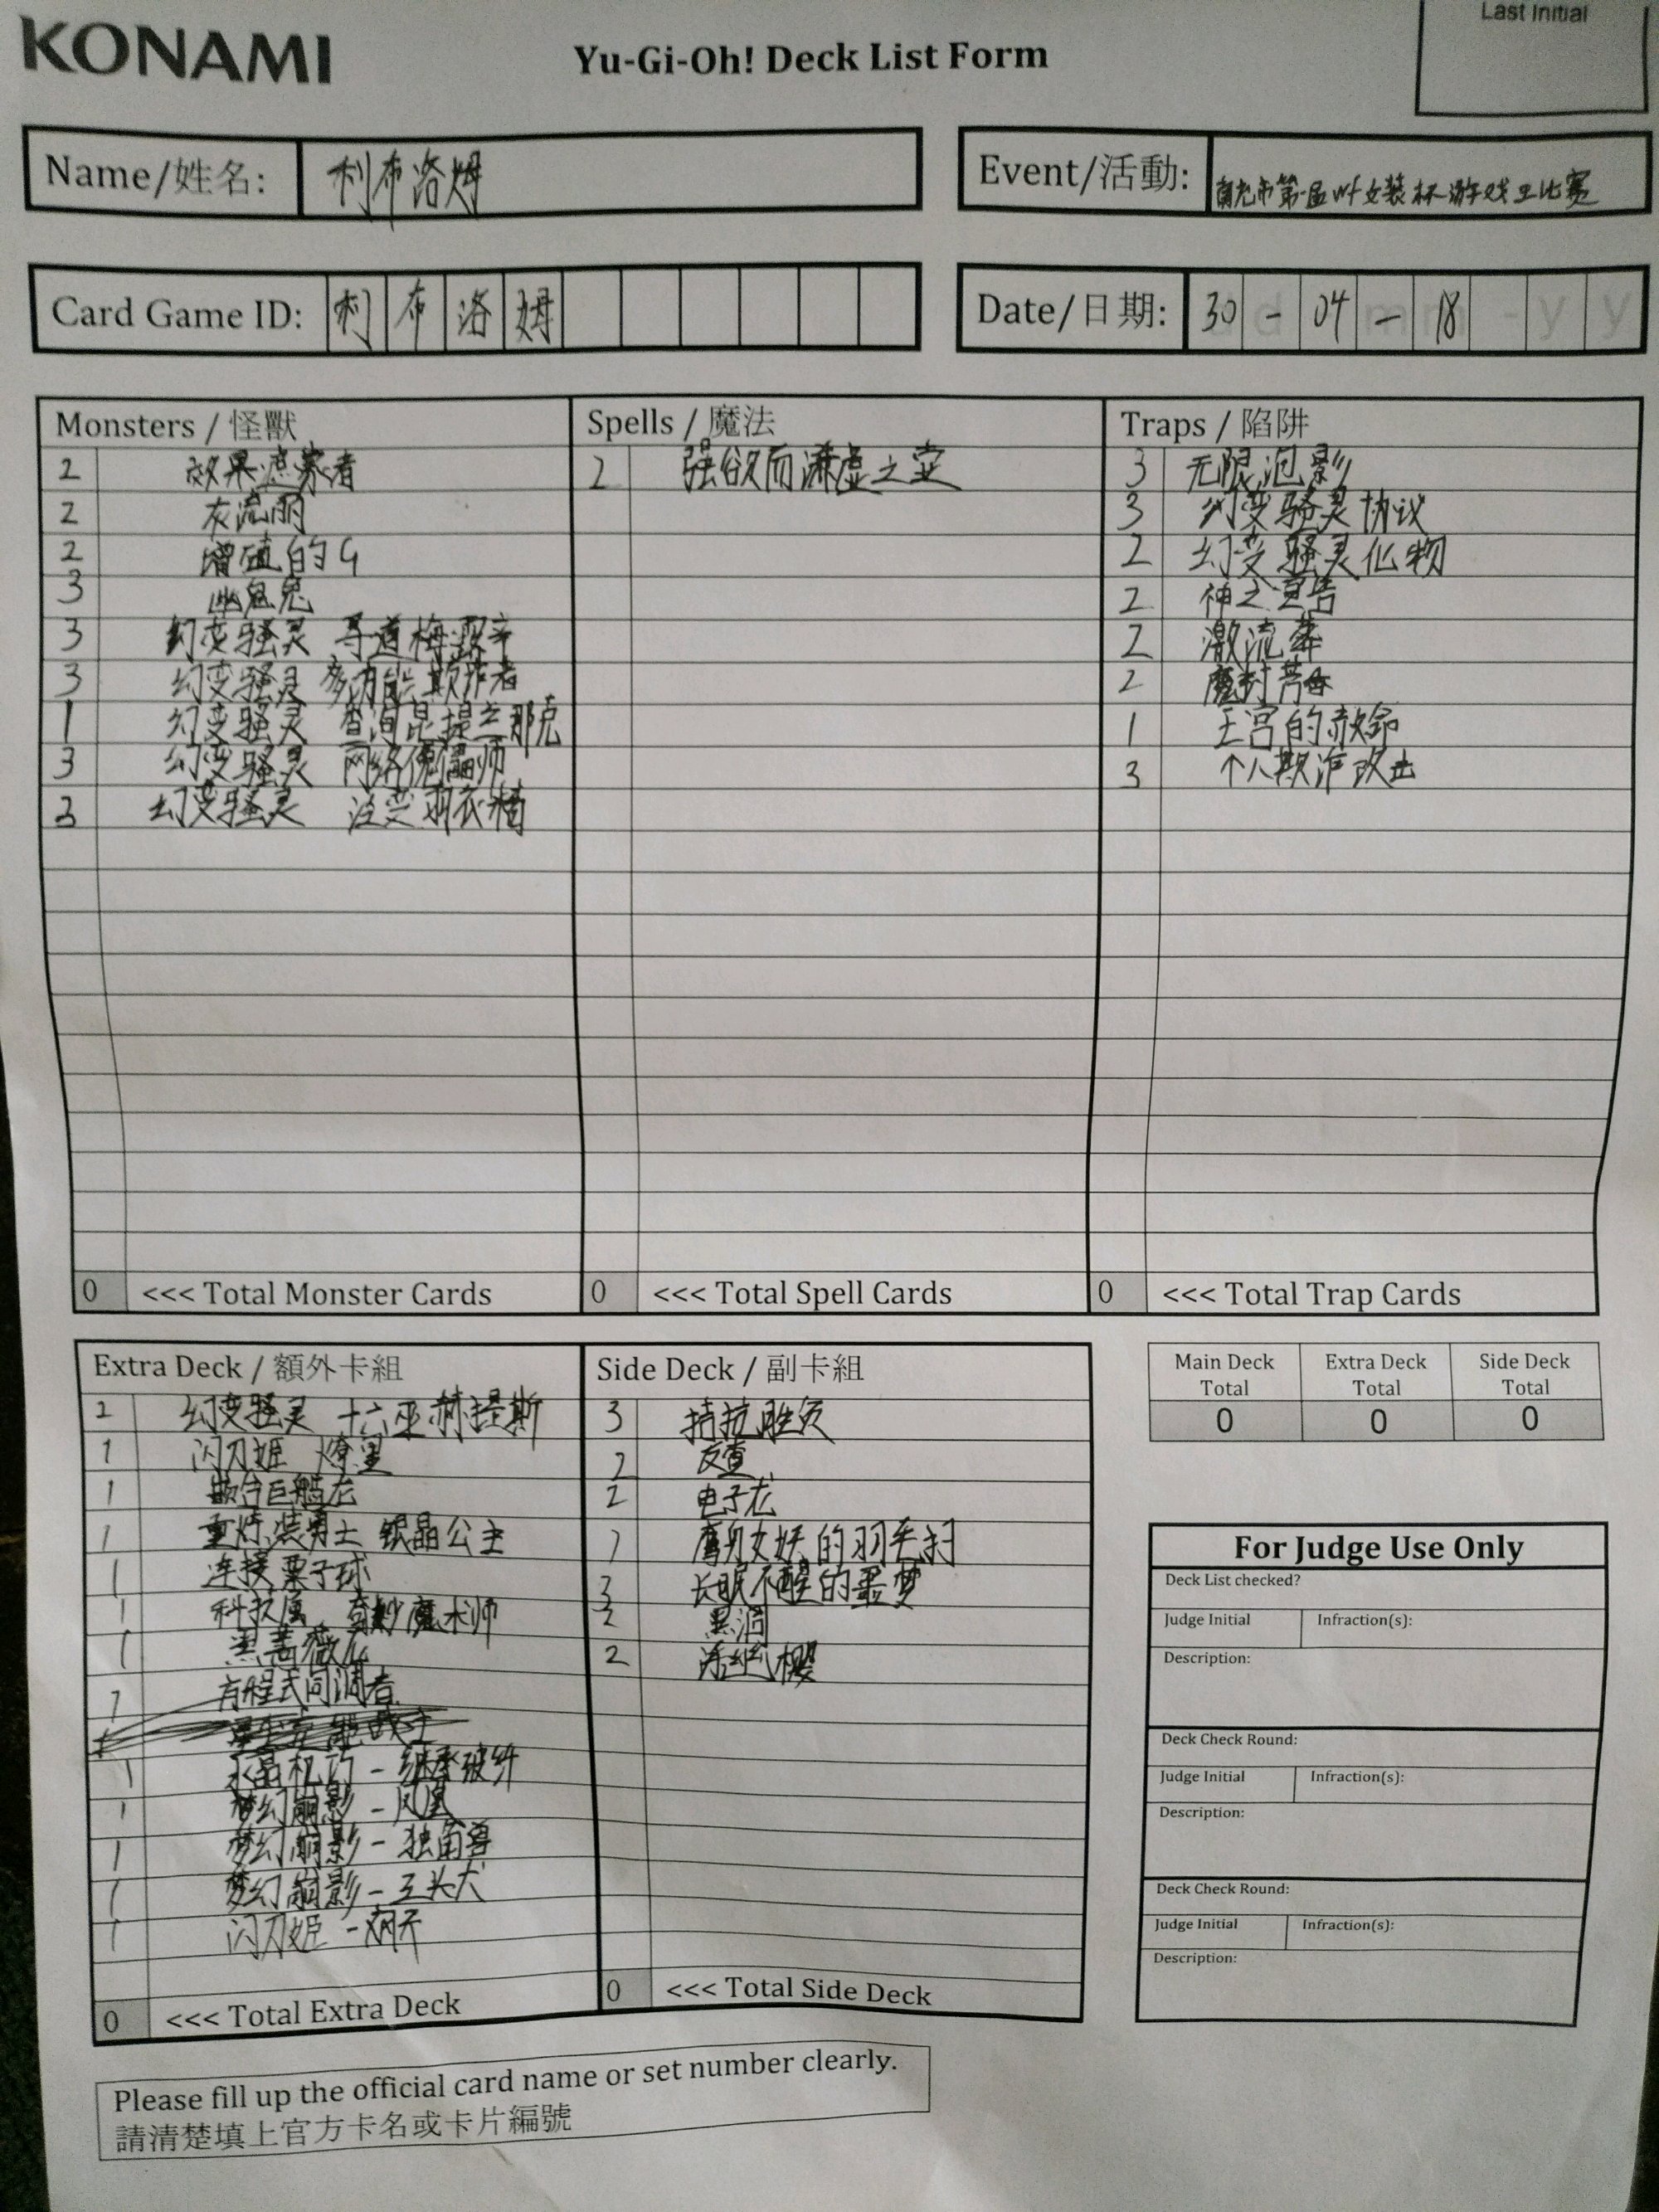 Last Initial
KONAMI
Yu-Gi-Oh! Deck List Form
Name/姓名: 利布洛姆
Event/活動: 市第一届 女装杯游戏王比赛
Card Game ID: 利 布 洛 姆
Date/日期: 30 - 04 - 18
Monsters / 怪獸
2 效果遮蒙者
2 灰流丽
2 增殖的G
3 幽鬼兔
3 幻变骚灵 寻道梅露辛
3 幻变骚灵 多功能欺诈者
1 幻变骚灵 查询昆提兰那克
3 幻变骚灵 网络傀儡师
3 幻变骚灵 泛变羽衣精
0 <<< Total Monster Cards
Spells / 魔法
2 强欲而谦虚之壶
0 <<< Total Spell Cards
Traps / 陷阱
3 无限泡影
3 幻变骚灵协议
2 幻变骚灵化物
2 神之宣告
2 激流葬
2 魔封芳香
1 王宫的敕命
3 个人欺诈攻击
0 <<< Total Trap Cards
Extra Deck / 額外卡組
2 幻变骚灵 十六巫赫提斯
1 闪刀姬 燎里
1 嵌合巨舰龙
1 重焊装勇士 银晶公主
1 连接栗子球
1 科技属 奇妙魔术师
1 黑蔷薇龙
1 方程式同调者
1 水晶机巧-继承玻纤
1 梦幻崩影-凤凰
1 梦幻崩影-独角兽
1 梦幻崩影-三头犬
1 闪刀姬-
0 <<< Total Extra Deck
Side Deck / 副卡組
3 拮抗胜负
2 友查
2 电子龙
1 鹰身女妖的羽毛扫
3 长眠不醒的噩梦
2 黑洞
2 浮幽樱
0 <<< Total Side Deck
Main Deck Total
Extra Deck Total
Side Deck Total
0 0 0
For Judge Use Only
Deck List checked?
Judge Initial Infraction(s):
Description:
Deck Check Round:
Judge Initial Infraction(s):
Description:
Deck Check Round:
Judge Initial Infraction(s):
Description:
Please fill up the official card name or set number clearly.
請清楚填上官方卡名或卡片編號